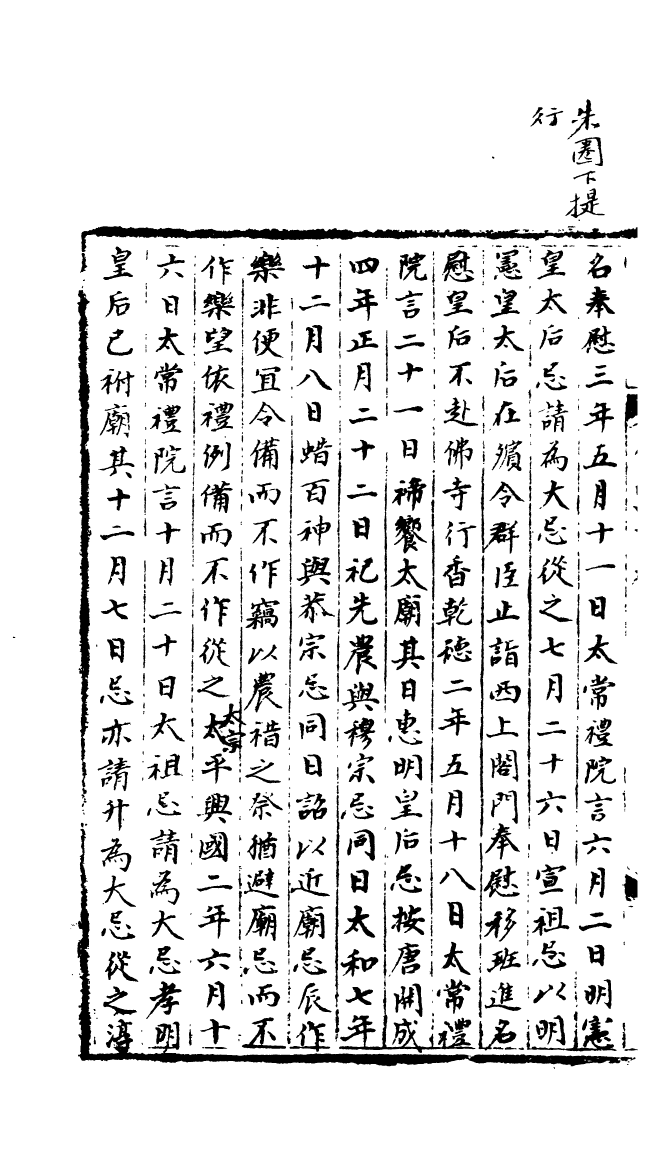 朱圈下提
行
名奉慰三年五月十一日太常禮院言六月二日明憲
皇太后忌請為大忌從之七月二十六日宣祖忌以明
憲皇太后在殯令群臣止詣西上閤門奉慰移班進名
慰皇后不赴佛寺行香乾德二年五月十八日太常禮
院言二十一日禘饗太廟其日惠明皇后忌按唐開成
四年正月二十二日祀先農與穆宗忌同日太和七年
十二月八日蜡百神與恭宗忌同日詔以近廟忌辰作
樂非便宜令備而不作竊以農禣之祭猶避廟忌而不
作樂望依禮例備而不作從之太宗太平興國二年六月十
六日太常禮院言十月二十日太祖忌請為大忌孝明
皇后已祔廟其十二月七日忌亦請升為大忌從之淳